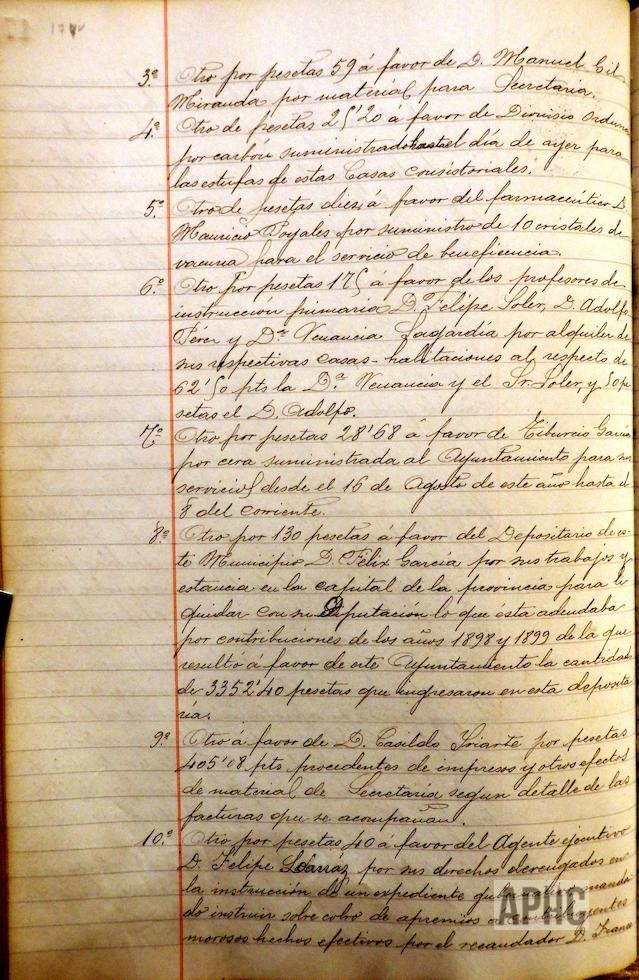 3ª Otro por pesetas 59 á favor de D. Manuel Gil
Miranda por material para Secretaria.
4ª Otro de pesetas 25'20 á favor de Dionisio Orduna
por carbón suministrado hasta el día de ayer para
las estufas de estas Casas consistoriales.
5º Otro de pesetas diez á favor del farmaceútico D.
Mauricio Poyales por suministro de 10 cristales de
vacuna para el servicio de beneficencia.
6º Otro por pesetas 175 á favor de los profesores de
instrucción primaria D. Felipe Soler, D. Adolfo
Pérez y Dª Venancia Lagardía por alquiler de
sus respectivas casas-habitaciones al respecto de
62'50 pts la Dª Venancia y el Sr. Soler, y 50 pe
setas el D. Adolfo.
7º Otro por pesetas 28'68 á favor de Tiburcio García
por cera suministrada al Ayuntamiento para sus
servicios desde el 16 de Agosto de este año hasta el
8 del corriente.
8ª Otro por 130 pesetas á favor del Depositario de es
te Municipio D. Félix García por sus trabajos y
estancia en la capital de la provincia para li
quidar con su Diputación lo que ésta adeudaba
por contribuciones de los años 1898 y 1899 de la que
resultó á favor de este Ayuntamiento la cantidad
de 3352'40 pesetas que ingresaron en esta deposita
ría.
9º Otro á favor de D. Casildo Iriarte por pesetas
405'08 pts procedentes de impresos y otros efectos
de material de Secretaría segun detalle de las
facturas que se acompañan.
10º Otro por pesetas 40 á favor del Agente ejecutivo
D. Felipe por sus derechos devengados en
la instrucción de un expediente que mando
do instruir sobre cobro de apremios
morosos hechos efectivos por el recaudador D. Fran
APHC